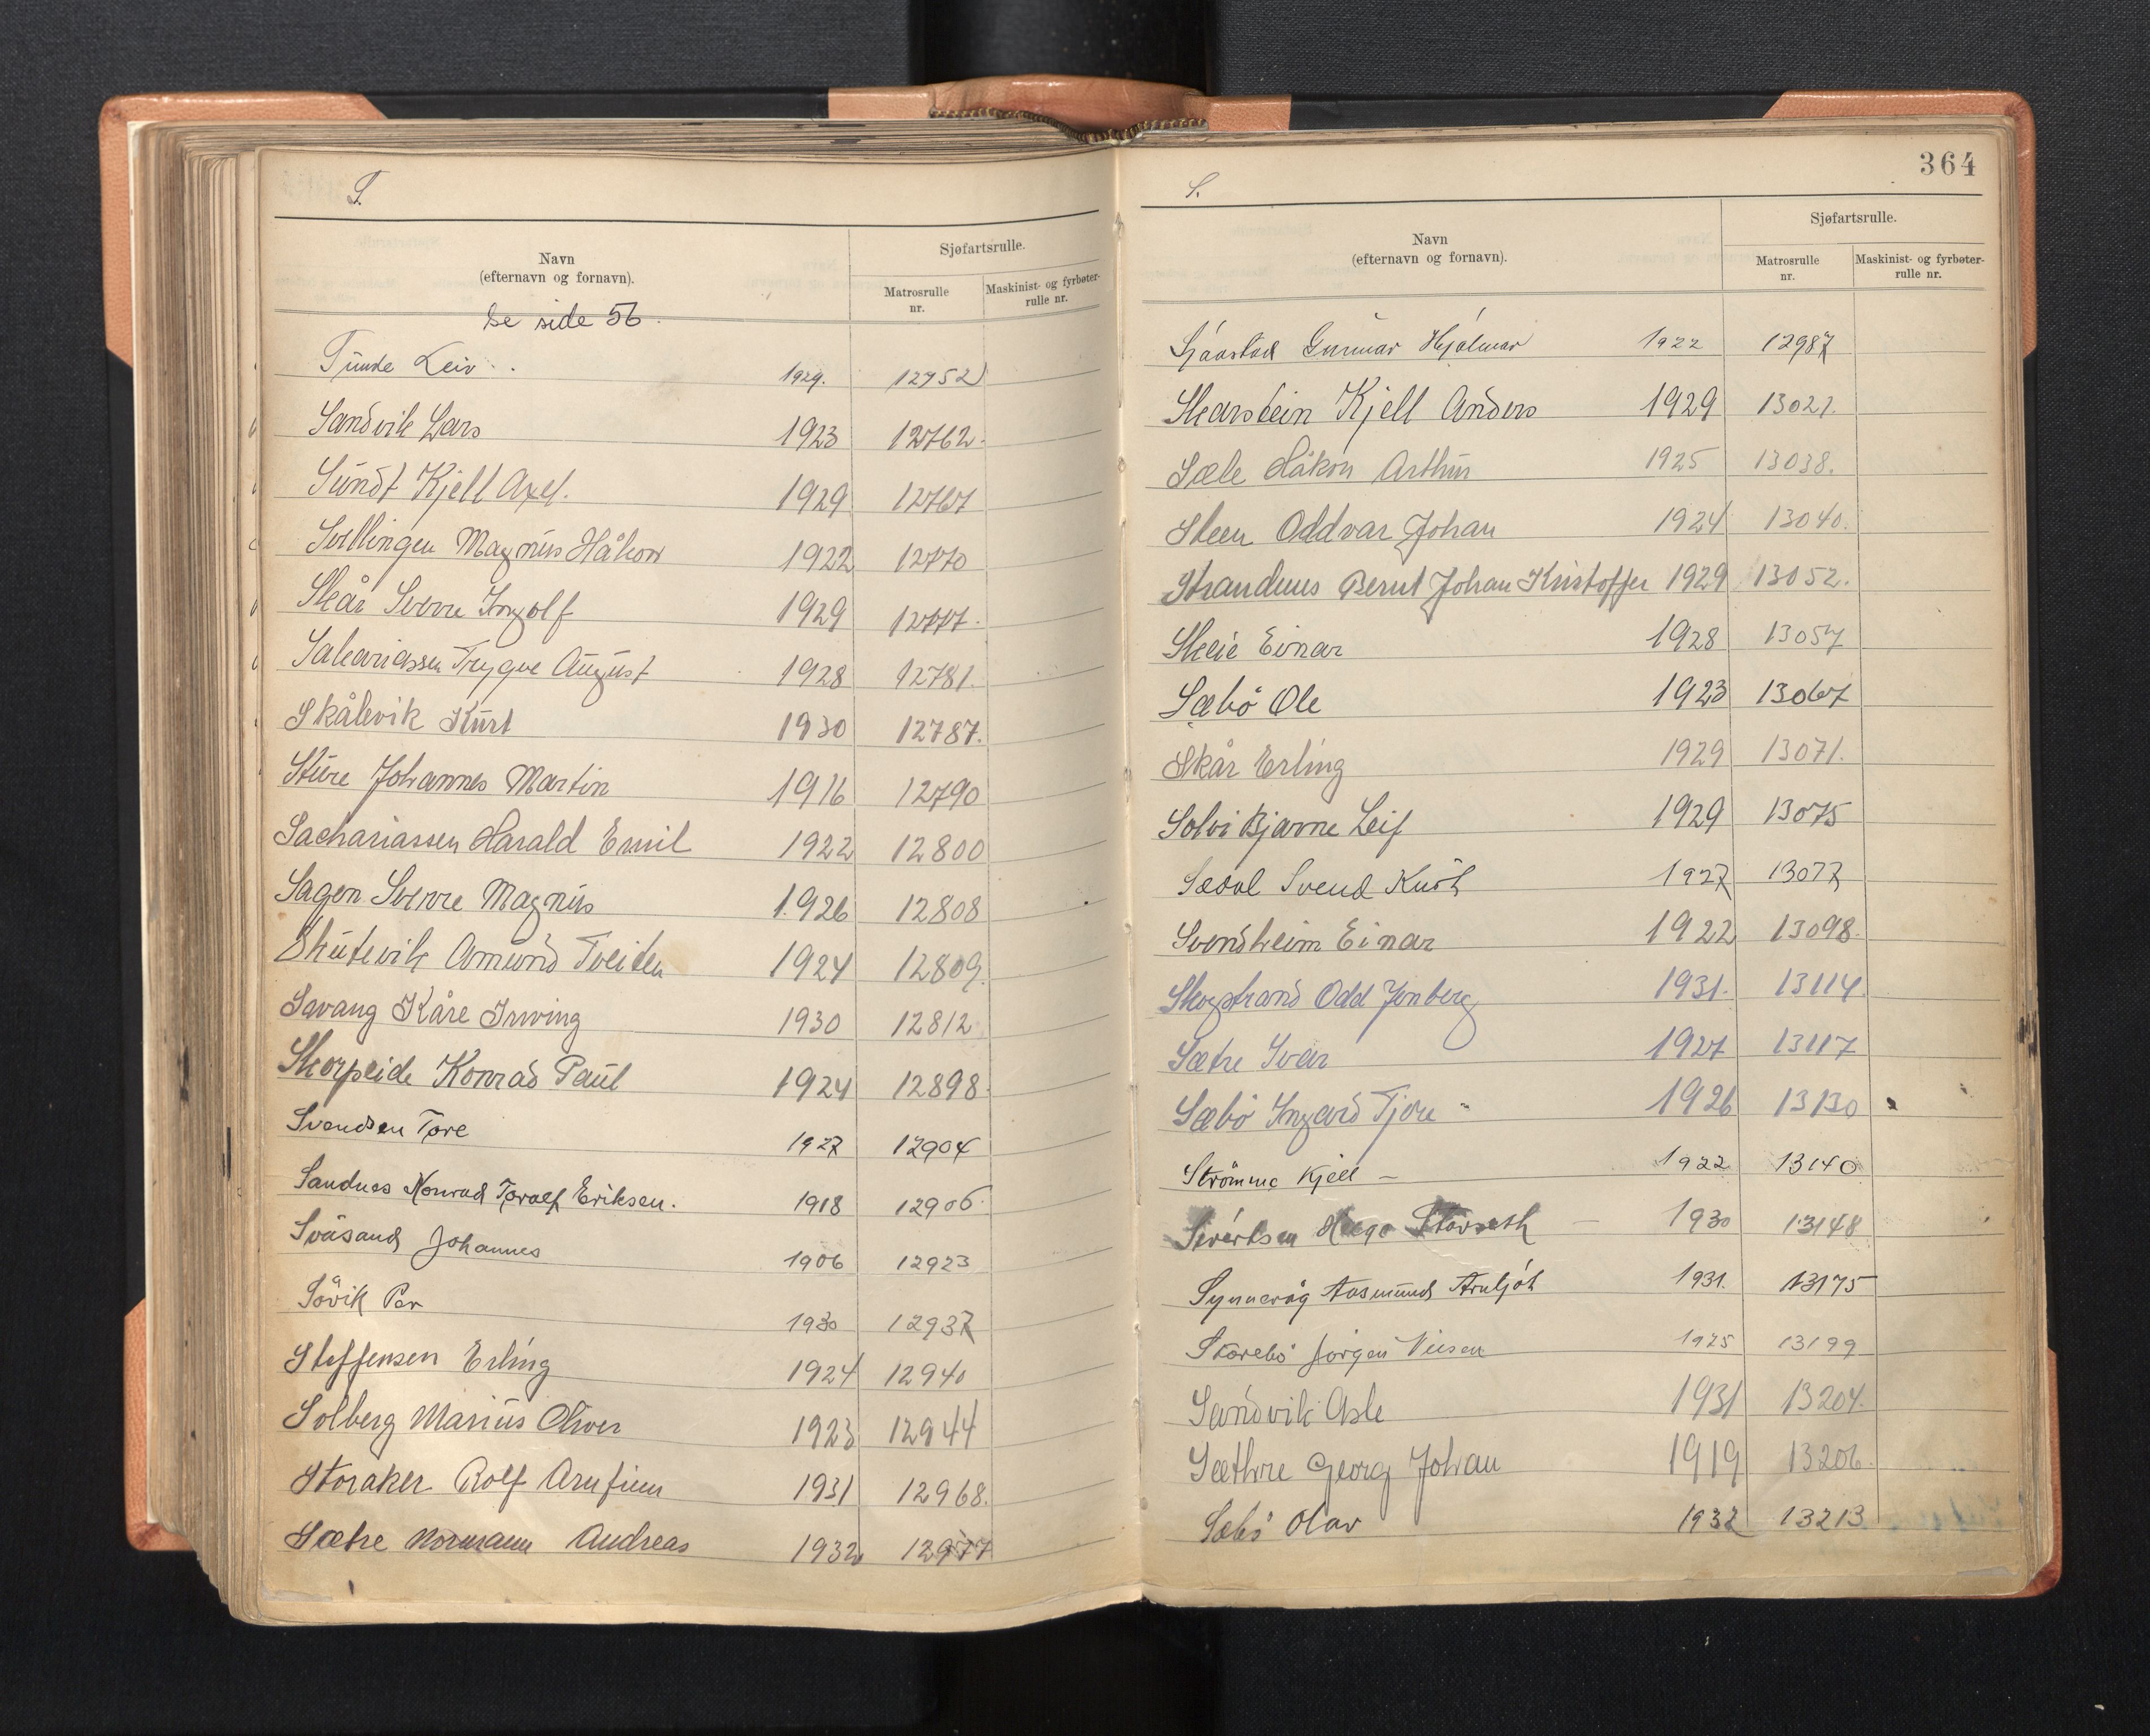 S.
Navn
(efternavn og fornavn).
Sjøfartsrulle.
Matrosrulle
nr.
Maskinist- og fyrbøter-
rulle nr.
Se side 56.
Tunde Leiv 1929. 12752
Sandvik Lars 1923 12762.
Sundt Kjell Axel. 1929 12767
Sellingen Magnus Håkon 1922 12770
Skår Sverre Ingolf 1929 12777.
Sakariassen Trygve August 1928 12781.
Skålevik Kurt 1930 12787.
Sture Johannes Martin 1916 12790
Sachariassen Harald Emil 1922 12800
Sagen Sverre Magnus 1926 12808
Skutevik Amund Tveiten 1924 12809.
Savang Kåre Irwing 1930 12812
Skorpeide Konrad Paul 1924 12898.
Svendsen Tore 1927 12904
Sandnes Konrad Toralf Eriksen. 1918 12906.
Svåsand Johannes 1906 12923
Søvik Per 1930 12937
Steffensen Erling 1924 12940
Solberg Marius Oliver 1923 12944
Storaker Rolf Arnfinn 1931 12968.
Sætre Normann Andreas 1932 12977
364
S.
Navn
(efternavn og fornavn).
Sjøfartsrulle.
Matrosrulle
nr.
Maskinist- og fyrbøter-
rulle nr.
Sjåstad Gunnar Hjalmar 1922 12987
Skarstein Kjell Anders 1929 13021.
Sæle Håkon Arthur 1925 13038.
Steen Oddvar Johan 1924 13040.
Strandenes Bernt Johan Kristoffer 1929 13052.
Skeie Einar 1928 13057
Sæbö Ole 1923 13067
Skår Erling 1929 13071.
Solvi Bjarne Leif 1929 13075
Svend 1927 13077
Svendheim Einar 1922 13098.
Skogstrand Odd Jenberg 1931. 13114.
Sætre Ivar 1927 13117
Sæbö Ingard Tjore 1926 13130
Strömme Kjell – 1922 13140
Sivertsen Hugo – 1930 13148
Synnevåg Aasmund Arnljót 1931. 13175
Storebö Jörgen 1925 13199
Sandvik Asle 1931 13204.
Sæthre Georg Johan 1919 13206.
Sæbö Olav 1932 13213